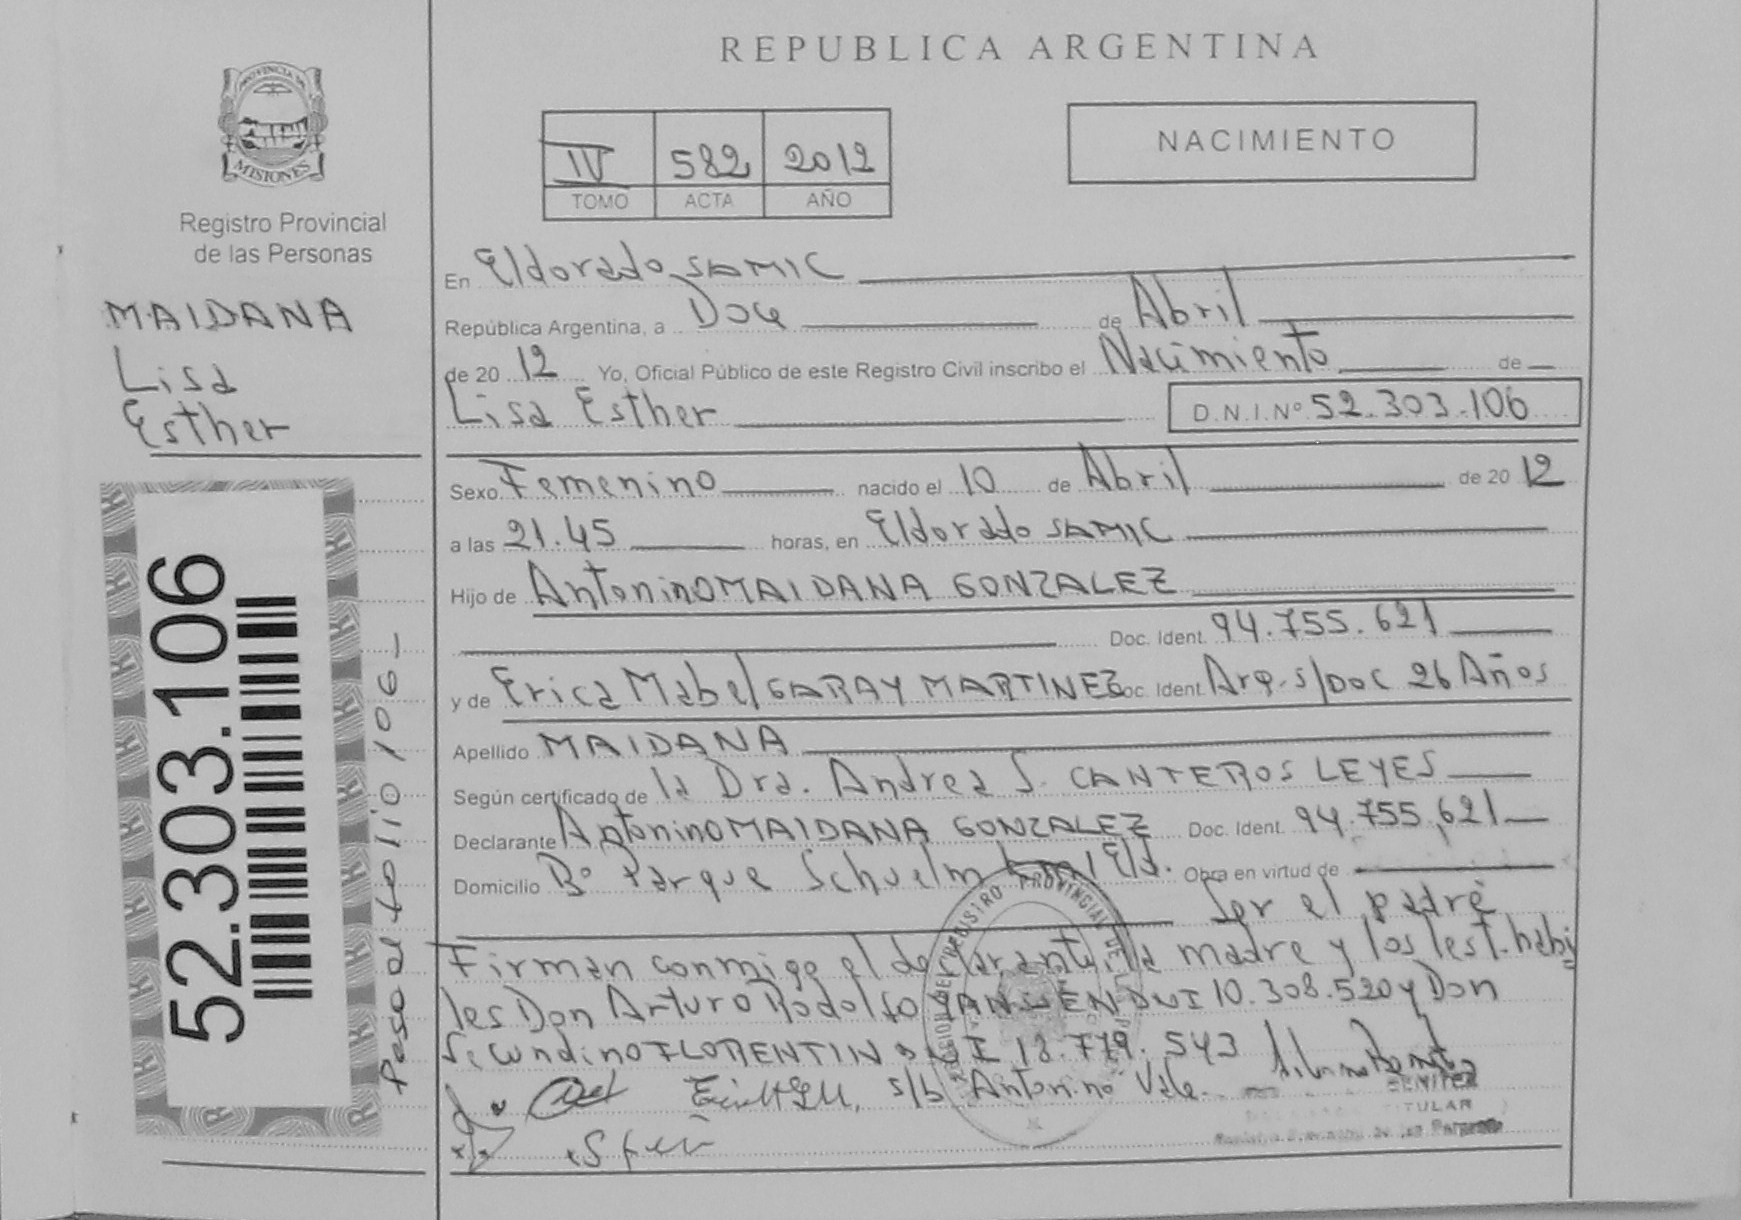 REPUBLICA ARGENTINA
PROVINCIA DE
MISIONES
Registro Provincial
de las Personas
MAIDANA
Lisa
Esther
52.303.106
Pasa al folio 106-
IV 582 2012
TOMO ACTA AÑO
NACIMIENTO
En Eldorado SAMIC
República Argentina, a Doce de Abril
de 20 12 Yo, Oficial Público de este Registro Civil inscribo el Nacimiento de
Lisa Esther D.N.I.Nº 52.303.106
Sexo Femenino nacido el 10 de Abril de 20 12
a las 21.45 horas, en Eldorado SAMIC
Hijo de Antonino MAIDANA GONZALEZ
Doc. Ident. 94.755.621
y de Erica Mabel GARAY MARTINEZ Doc. Ident. Arg. s/Doc 26 Años
Apellido MAIDANA
Según certificado de la Dra. Andrea S. CANTEROS LEYES
Declarante Antonino MAIDANA GONZALEZ Doc. Ident. 94.755.621
Domicilio Bº Parque Schuelm Eld. Obra en virtud de
Ser el padre
Firman conmigo el declarante, la madre y los test. habi
les Don Arturo Rodolfo DNI 10.308.520 y Don
Secundino FLORENTIN DNI 18.779.543
s/b Antonino Vale.
BENITEZ
TITULAR
Registro Provincial de las Personas